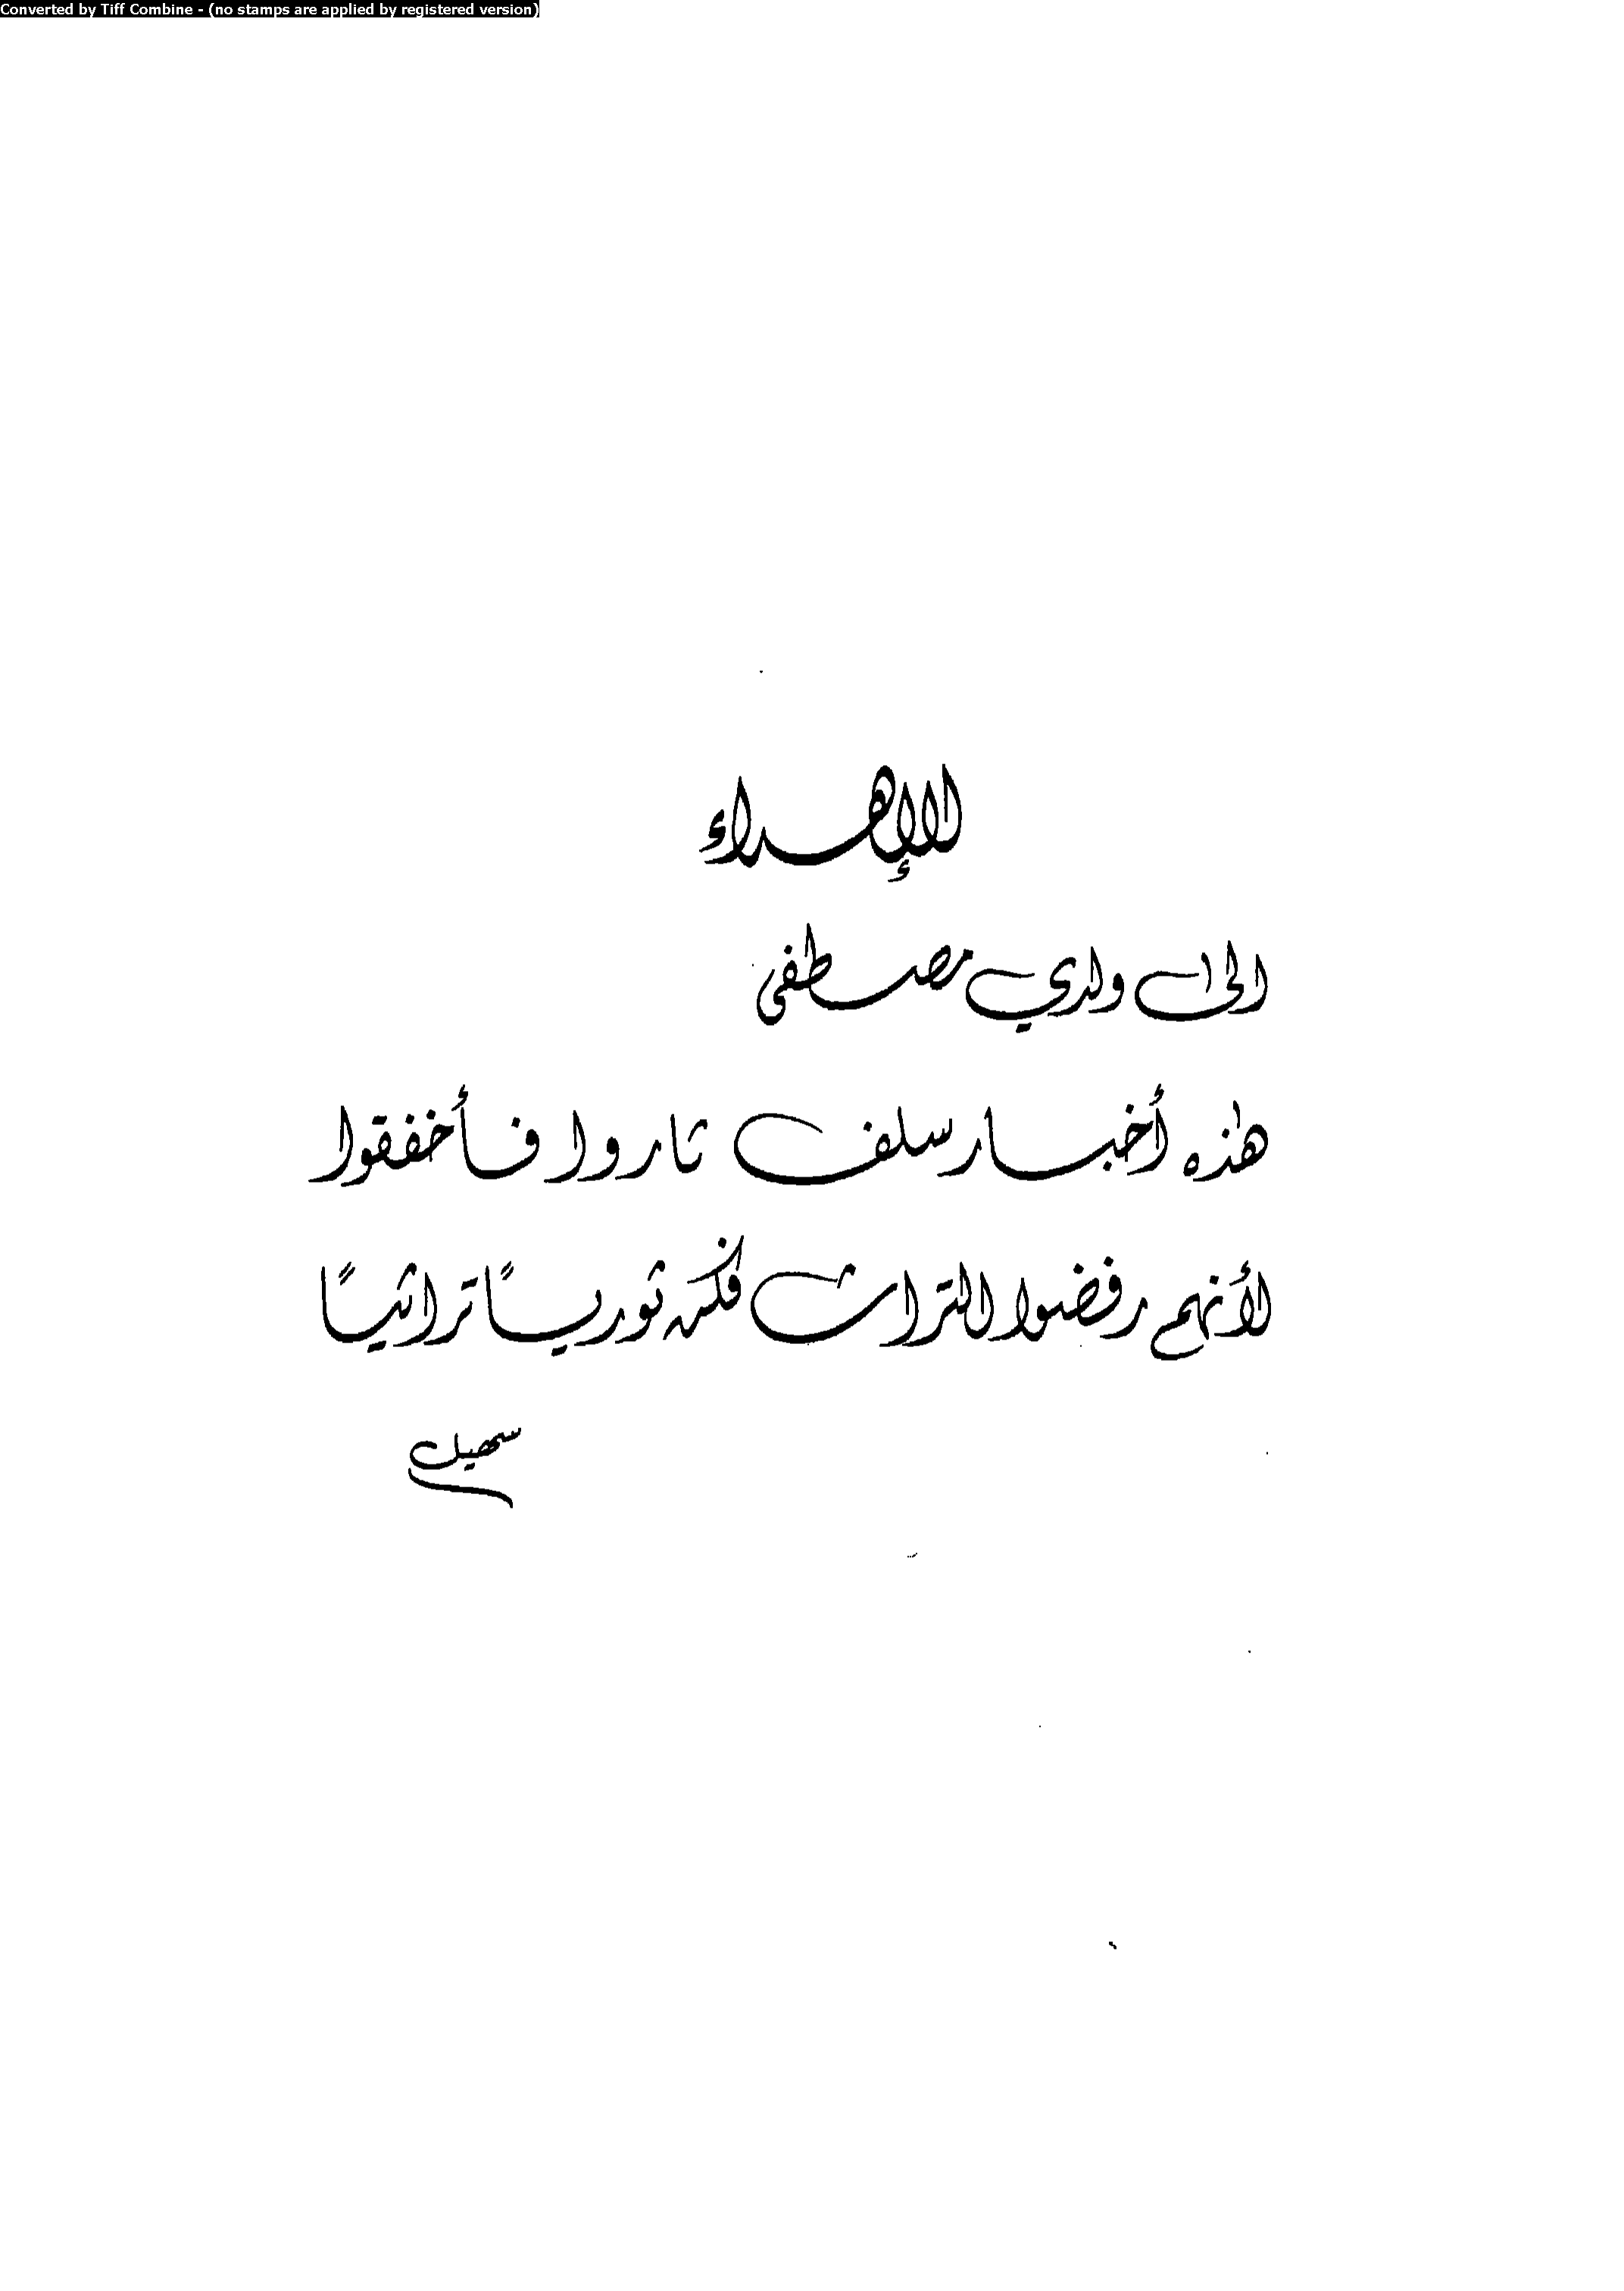 Converted by Tiff Combine - (no stamps are applied by registered version)
الإهداء
الى ولدي مصطفى
هذه أخبار سلف ثاروا فأخفقوا
لأنهم رفضوا التراث فكن ثورياً تراثياً
سهيل